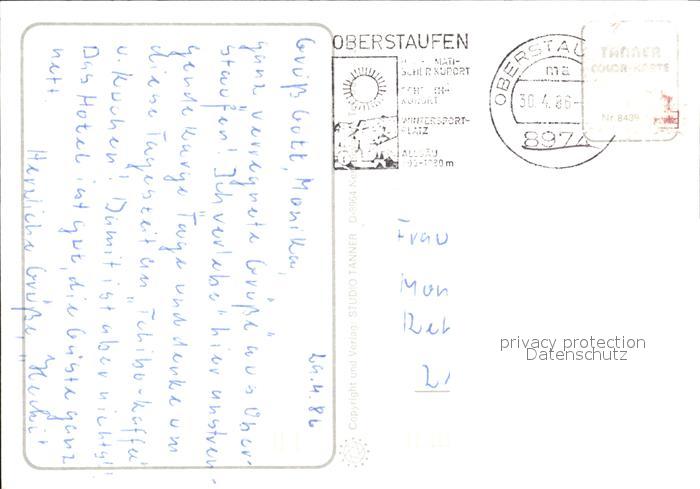 29.4.86
Grüß Gott, Monika,
ganz verregnete Grüße aus Ober-
staufen! Ich verlebe hier anstren-
gende karge Tage und denke um
diese Tageszeit an "Tchibo-Kaffee
u. Kuchen"! Damit ist aber nichts!!
Das Hotel ist gut, die Gäste ganz
nett.
Herzliche Grüße,
OBERSTAUFEN
SCHROTHKURORT
WINTERSPORT-
PLATZ
ALLGÄU
OBERSTAU
30.4.86
897
TANNER
COLOR-KARTE
Nr. 8439
Copyright und Verlag: STUDIO TANNER D-8964 N
Frau
Mon
privacy protection
Datenschutz